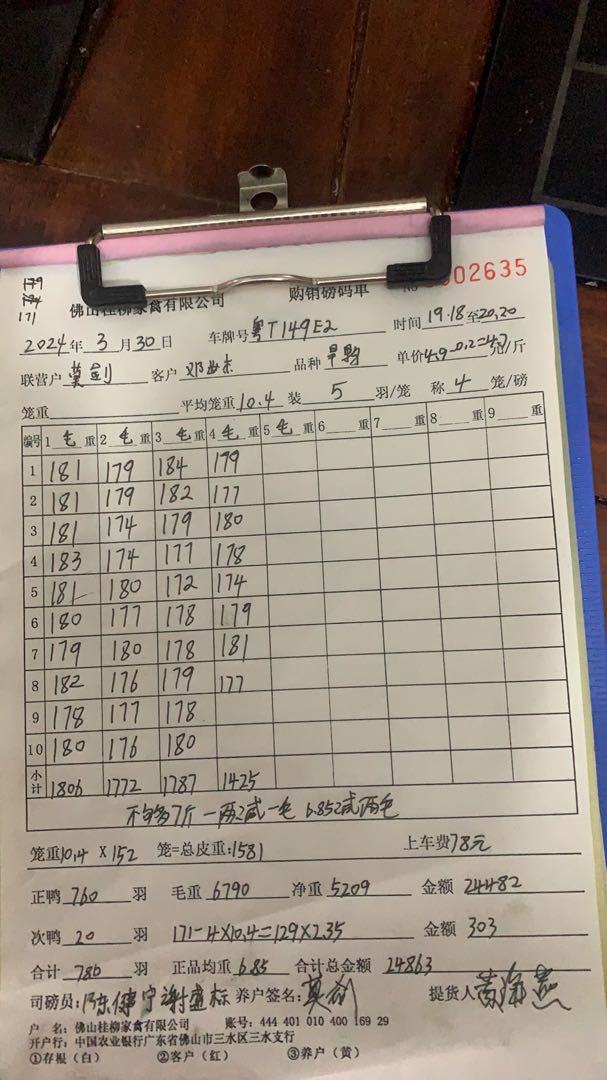 179
171
佛山桂柳家禽有限公司 购销磅码单 No 0002635
2024年 3月30日 车牌号粤T149E2 时间19.18至20.20
联营户莫剑 客户 邓 品种 早鸭 单价4.9-0.2=4.7元/斤
笼重 平均笼重10.4 装 5 羽/笼 称 4 笼/磅
编号 1 毛 重 2 毛 重 3 毛 重 4 毛 重 5 毛 重 6 重 7 重 8 重 9 重
1 181 179 184 179
2 181 179 182 177
3 181 174 179 180
4 183 174 177 178
5 181 180 172 174
6 180 177 178 179
7 179 180 178 181
8 182 176 179 177
9 178 177 178
10 180 176 180
小计 1806 1772 1787 1425
不够7斤一两减一毛 6.85减两毛
笼重10.4 X 152 笼=总皮重:1581 上车费78元
正鸭 760 羽 毛重 6790 净重 5209 金额 24482
次鸭 20 羽 171-4×10.4=129×2.35 金额 303
合计 780 羽 正品均重 6.85 合计总金额 24863
司磅员:陈健宁 谢 标 养户签名:莫剑 提货人黄海燕
户 名:佛山桂柳家禽有限公司 账号:444 401 010 400 169 29
开户行:中国农业银行广东省佛山市三水区三水支行
①存根(白) ②客户(红) ③养户(黄)